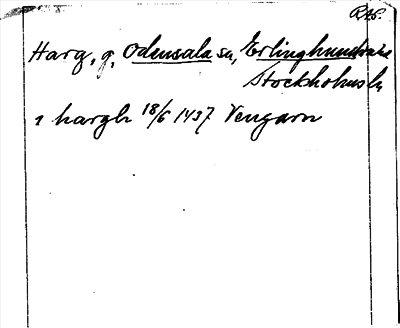 RAP.
Harg, g, Odensala sn, Erlinghundra hd
Stockholms ln
i hargh 18/6 1437 Vengarn